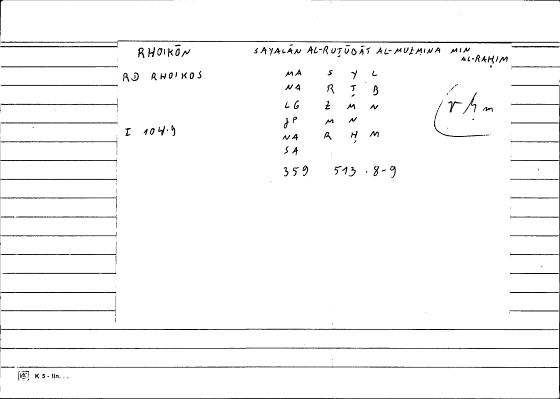 RHOIKŌN SAYALĀN AL-RUṬŪBĀT AL-MUZMINA MIN AL-RAḤIM
RD RHOIKOS MA S Y L
NA R Ṭ B
LG Z M N
JP M N
I 104.9 NA R Ḥ M
SA
359 513.8-9
rḥm
K 5 - lin...